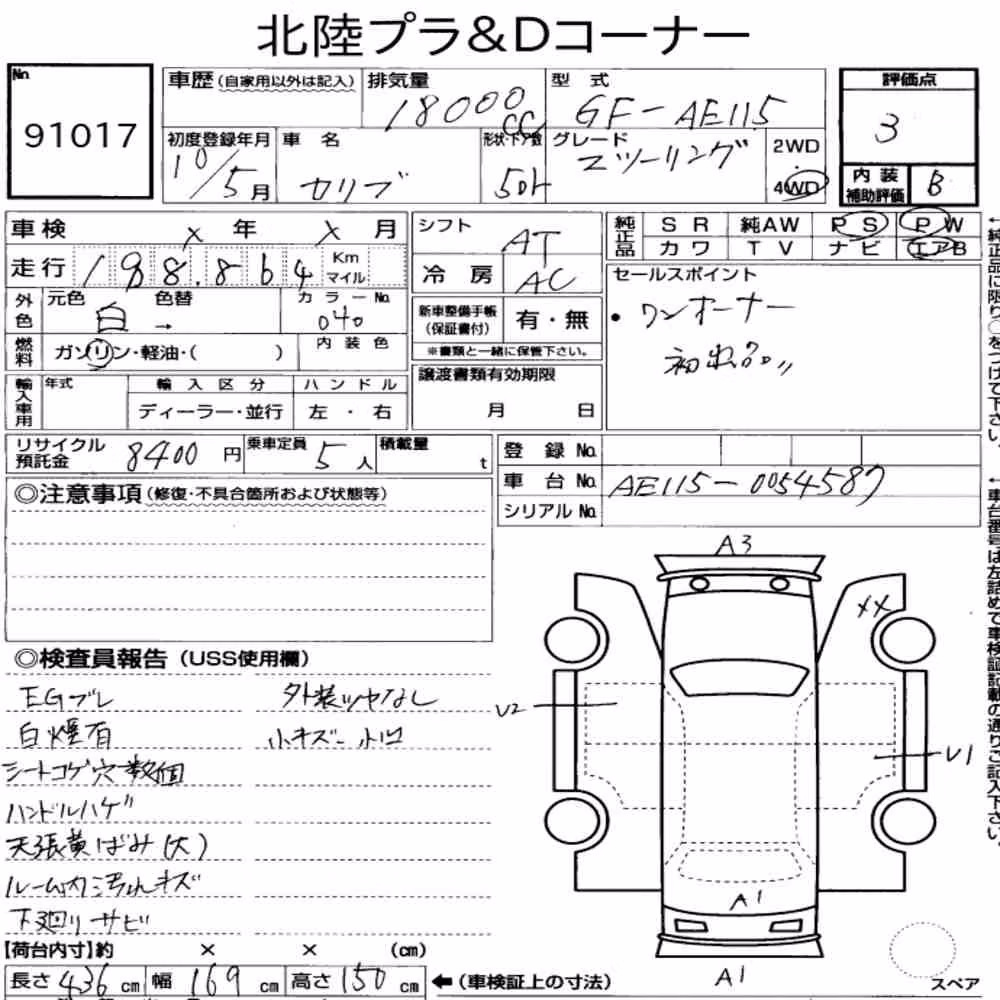 北陸プラ&Dコーナー
No.
91017
車歴(自家用以外は記入)
排気量
18000cc
型式
GF-AE115
評価点
3
内装補助評価
B
初度登録年月
10/5月
車名
カリブ
形状・ドア数
5Dr
グレード
Zツーリング
2WD
・
4WD
車検 X 年 X 月
走行 198.864 Km マイル
外色
元色 白
色替 →
カラーNo.
040
燃料
ガソリン・軽油・( )
内装色
シフト
AT
冷房
AC
新車整備手帳(保証書付)
有・無
※書類と一緒に保管下さい。
純正品
SR 純AW PS PW
カワ TV ナビ エアB
セールスポイント
・ワンオーナー
初出品〃
←純正品に限り○をつけて下さい。
輸入車用
年式
輸入区分
ディーラー・並行
ハンドル
左・右
譲渡書類有効期限
月 日
リサイクル預託金
8400円
乗車定員
5人
積載量
t
登録No.
車台No.
AE115-0054587
シリアルNo.
←車台番号は左詰めで車検証記載の通りご記入下さい。
◎注意事項(修復・不具合箇所および状態等)
◎検査員報告(USS使用欄)
EGブレ
白煙有
シートコゲ穴数個
ハンドルハゲ
天張黄ばみ(大)
ルーム内汚れキズ
下廻リサビ
外装ツヤなし
小キズ小凹
A3
XX
U2
U1
A1
A1
スペア
【荷台内寸】約 × × (cm)
長さ 436 cm 幅 169 cm 高さ 150 cm ←(車検証上の寸法)